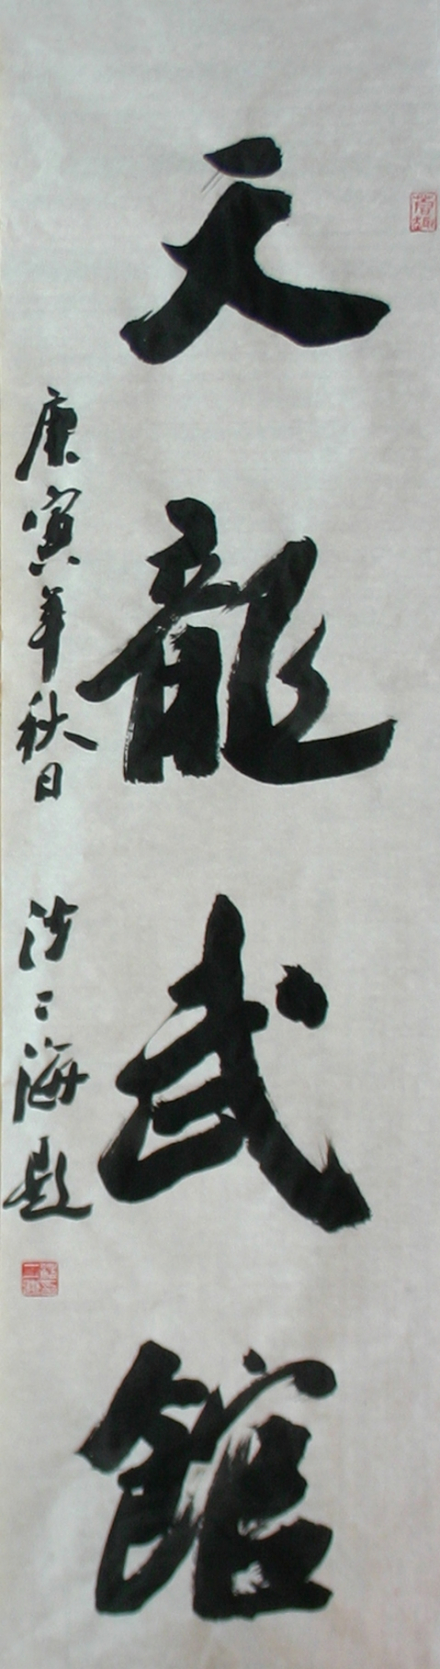 天龍武館
庚寅年秋日
二海題